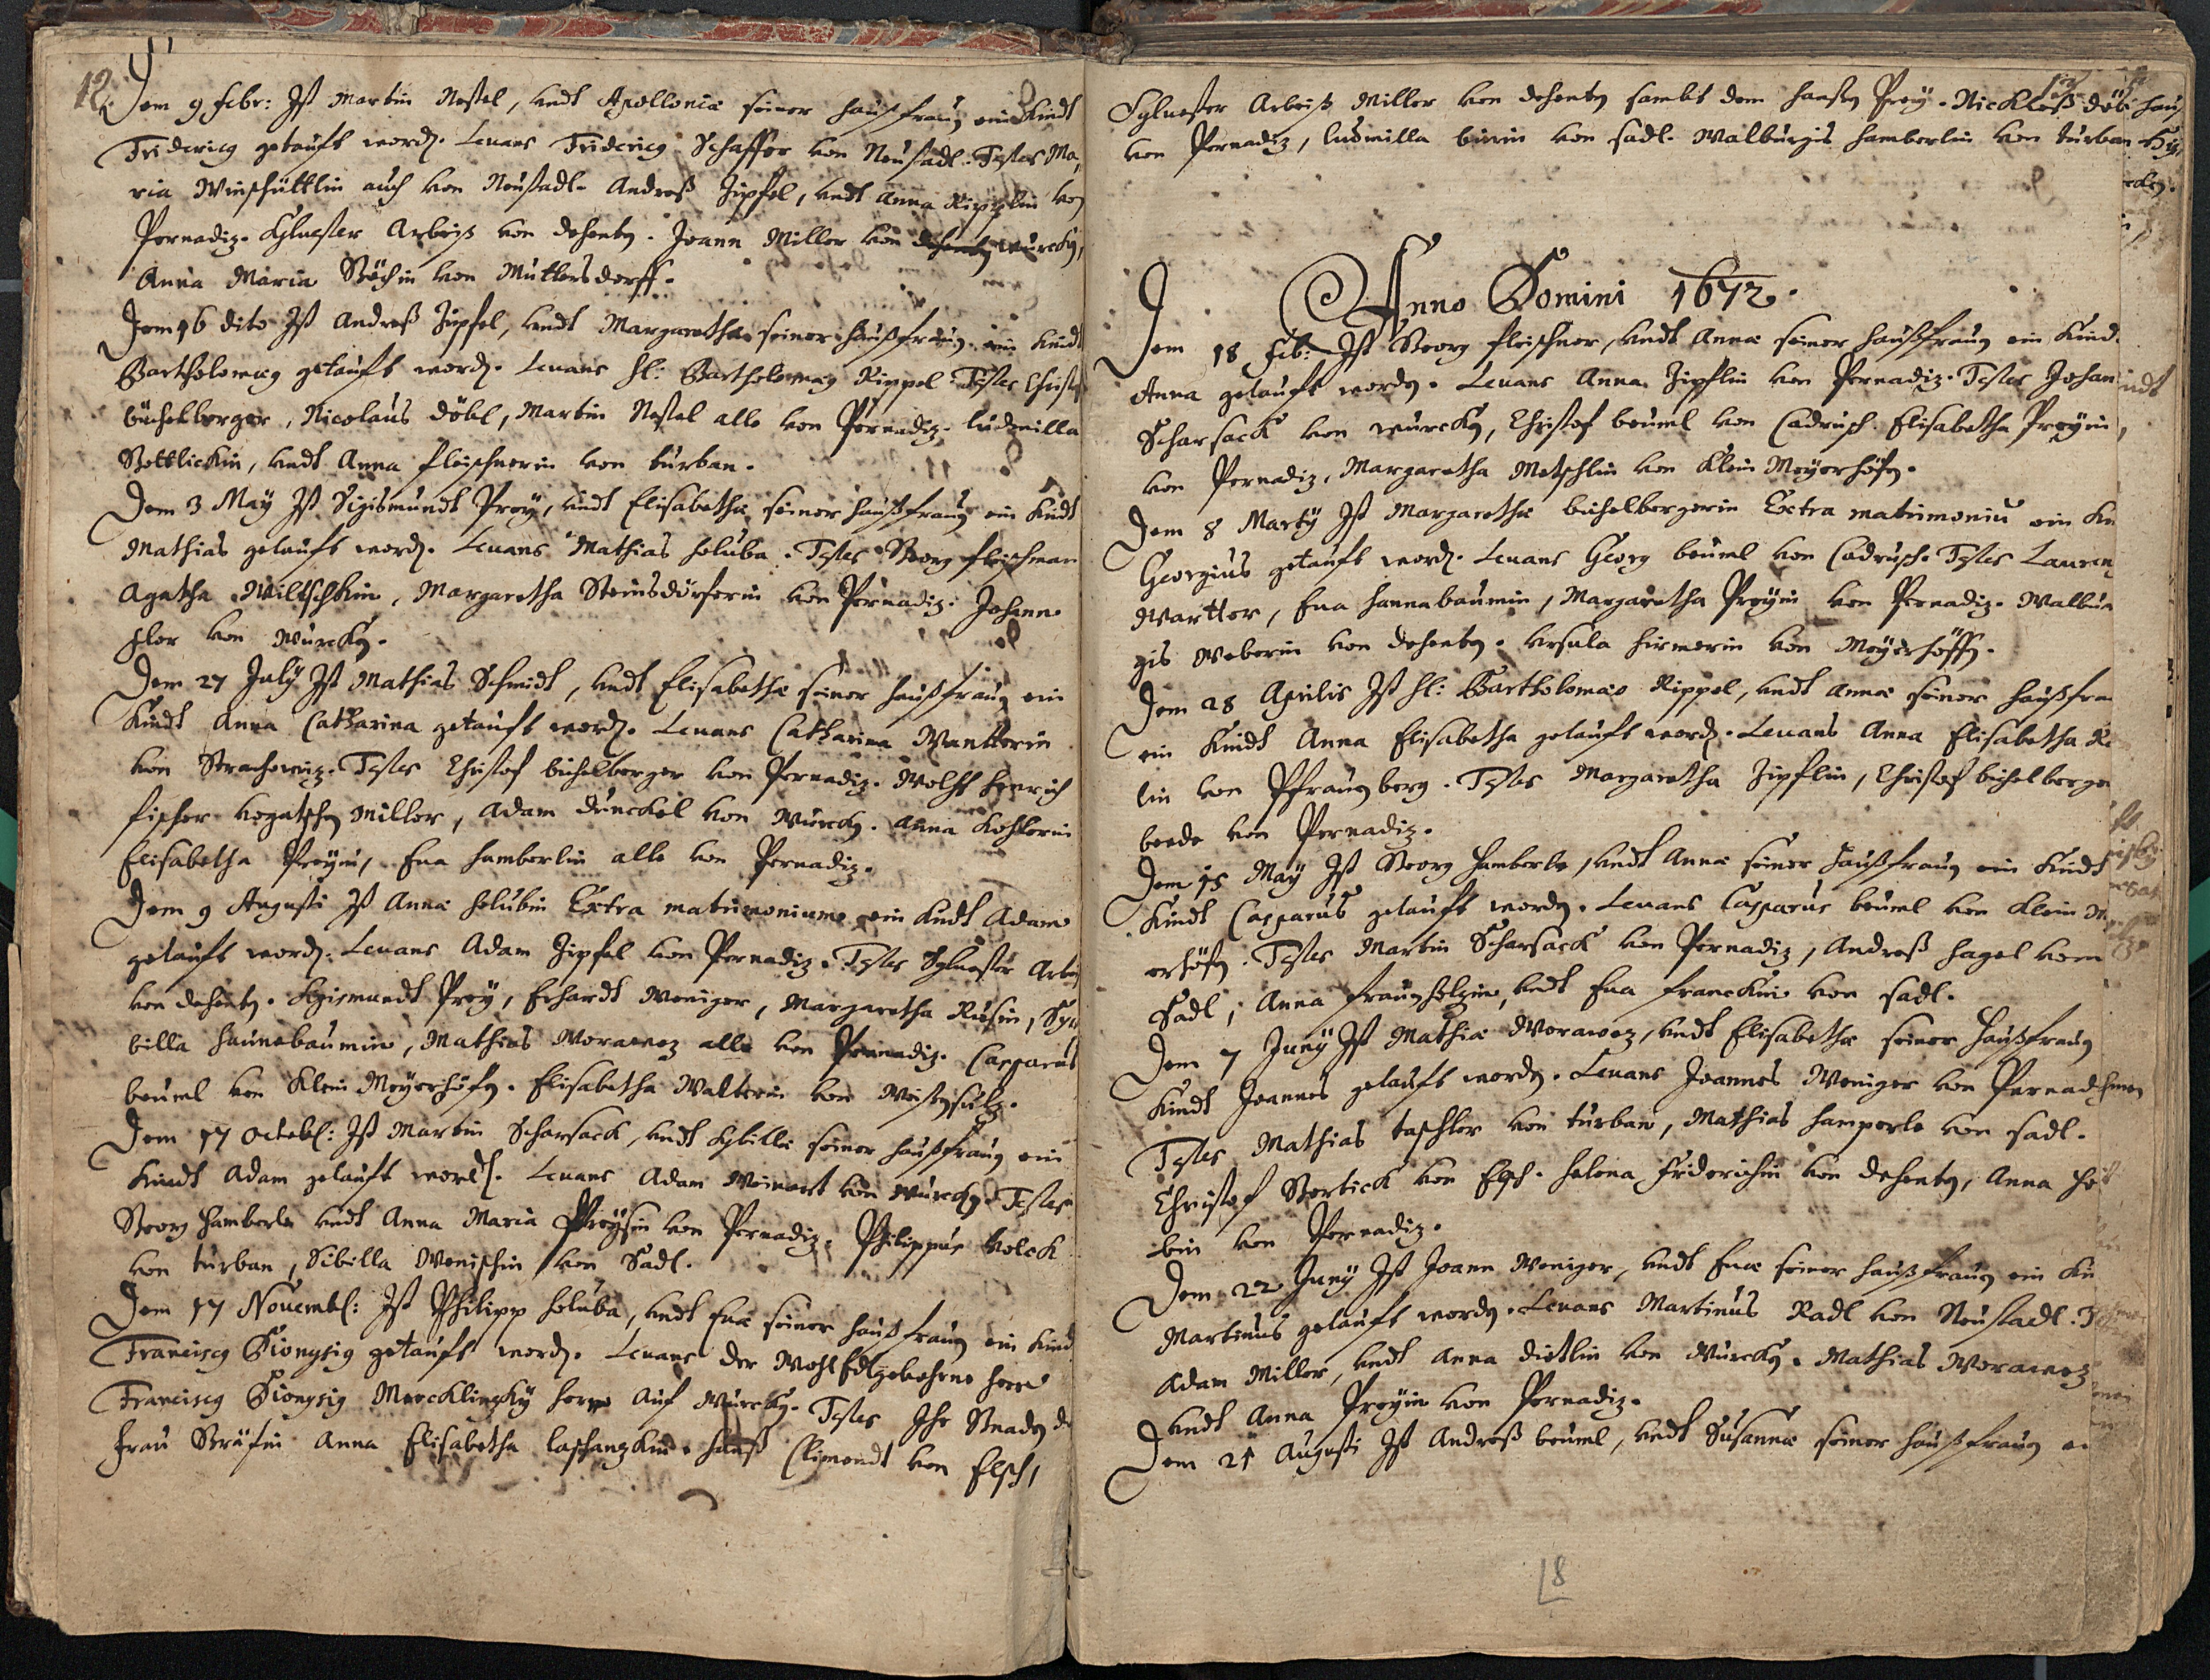 12.
Dem 9 febr: Ist Martin Nestel, undt Apollonia seiner haußfraug ein Kindt
Fridericq getauft word. Levans Fridericq Schaffer von Neustadl. Testes Ma,
ria Winschüttlin auch von Neustadl. Andreß Zipfel, undt Anna Ripplin von
Pernadiz. Sylvester Arbeiß von dehenten. Joann Miller von wurcken,
Anna Maria Böhin von Muttersdorff.
Dem 16 dito Ist Andreß Zipfel, undt Margaretha seiner haußfraug ein Kindt
Bartholomæq getauft word. Levans H: Bartholomæq Rippel. Testes Christof
büchelberger, Nicolaus döbl, Martin Nestel alle von Pernadiz. ludmilla
Bottlickin, undt Anna fleischnerin von turban.
Dem 3 May Ist Sigismundt Prey, undt Elisabetha seiner haußfraug ein Kindt
Mathias getauft word. Levans Mathias holuba. Testes Georg fleischman
Agatha Miltschkin, Margaretha Steinsdörferin von Pernadiz. Johann
von Wurcken.
Dem 27 July Ist Mathias Schmidt, undt Elisabetha seiner haußfraug ein
Kindt Anna Catharina getauft word. Levans Catharina Wantterin
von Strachowiz. Testes Christof büchelberger von Pernadiz. Wolff Henrich
fischer Miller, Adam dünckel von Wurcken. Anna Kohlerin
Elisabetha Preyin, Eva hamberlin alle von Pernadiz.
Dem 9 Augusti Ist Anna holubin Extra matrimonium ein Kindt Adam
getauft word. Levans Adam Zipfel von Pernadiz. Testes Sylvester Arbeiß
von dehenten. Sygismundt Prey, Erhardt Weniger, Margaretha Süssin, Sy
billa haunabaumin, Mathias Worawez alle von Pernadiz. Casparus
beuml von Klein Meyerhöfen. Elisabetha Walterin von Weissensulz.
Dem 17 octobr: Ist Martin Scharsack, undt Sybilla seiner haußfraug ein
Kindt Adam getauft word. Levans Adam Weinert von Wurcken. Testes
Georg hamberle undt Anna Maria Preysin von Pernadiz. Philippus volck
von turban, Sibilla Wenischin von Sadl.
Dem 17 Novembr: Ist Philipp holuba, undt Eva seiner haußfraug ein Kind
Franciscq Dionysiq getauft word. Levans der WohlEdlgebohrne herr
Franciscq Dionysiq Mercklinsky herr auf Wurcken. Testes Ihr Gnaden d
frau Gräfin Anna Elisabetha laschanzkin. hanß Climendt von Elsch,
Sylvester Arbeiß Miller von dehenten sambt dem hansen Prey. Nickleß döbl
von Pernadiz, ludmilla birin von sadl. Walburgis hamberlin von turban
Anno Domini 1672.
Dem 18 feb: Ist Georg fleischner, undt Anna seiner haußfraug ein Kind
Anna getauft worden. Levans Anna Zipflin von Pernadiz. Testes Johan
Scharsack von wurcken, Christof beuml von Cadrusch. Elisabetha Preyin,
von Pernadiz, Margaretha Metschlin von Klein Meyerhöfen.
Dem 8 Marty Ist Margaretha büchelbergerin Extra matrimoniu ein Ki
Georgius getauft word. Levans Georg beuml von Cadrusch. Testes Lauren
Wartter, Eva hannabaumin, Margaretha Preyin von Pernadiz. Walbur
gis Weberin von dehenten. Ursula hirmerin von Meyerhöffen.
Dem 28 Aprilis Ist H: Bartholomæo Rippel, undt Anna seiner haußfra
ein Kindt Anna Elisabetha getauft word. Levans Anna Elisabetha
lin von Pfraumberg. Testes Margaretha Zipflin, Christof büchelberger
beede von Pernadiz.
Dem 15 May Ist Georg hamberle, undt Anna seiner haußfraug ein Kindt
Kindt Casparus getauft worden. Levans Casparus beuml von Klein M
erhöfen. Testes Martin Scharsack von Pernadiz, Andreß hagel von
Sadl, Anna fraunholzin, undt Eva franckin von sadl.
Dem 7 Juny Ist Mathia Worawez, undt Elisabetha seiner haußfraug
Kindt Joannes getauft worden. Levans Joannes Weniger von Pernad
Testes Mathias taschler von turban, Mathias hamperle von sadl.
Christof Bertick von Elsch. helena friderichin von dehenten, Anna ho
bin von Pernadiz.
Dem 22 Juny Ist Joann Weniger, undt Eva seiner haußfraug ein Ki
Martinus getauft worden. Levans Martinus Radl von Neustadl. T
Adam Miller, undt Anna dietlin von Wurcken. Mathias Worawez
undt Anna Preyin von Pernadiz.
Dem 21 Augusti Ist Andreß beuml, undt Susanna seiner haußfraug e
18